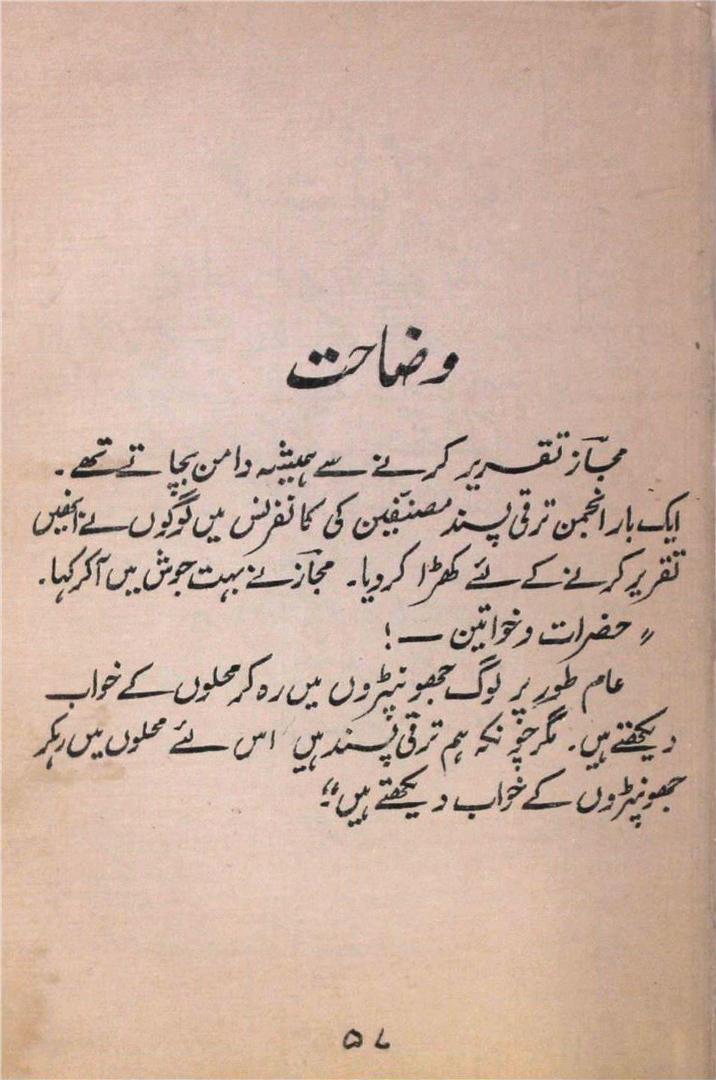 وضاحت
مجازؔ تقریر کرنے سے ہمیشہ دامن بچاتے تھے۔
ایک بار انجمن ترقی پسند مصنفین کی کانفرنس میں لوگوں نے انھیں
تقریر کرنے کے لئے کھڑا کر دیا۔ مجازؔ نے بہت جوش میں آکر کہا۔
"حضرات و خواتین — !
عام طور پر لوگ جھونپڑوں میں رہ کر محلوں کے خواب
دیکھتے ہیں۔ مگر چونکہ ہم ترقی پسند ہیں اس لئے محلوں میں رہکر
جھونپڑوں کے خواب دیکھتے ہیں۔"
۵۷